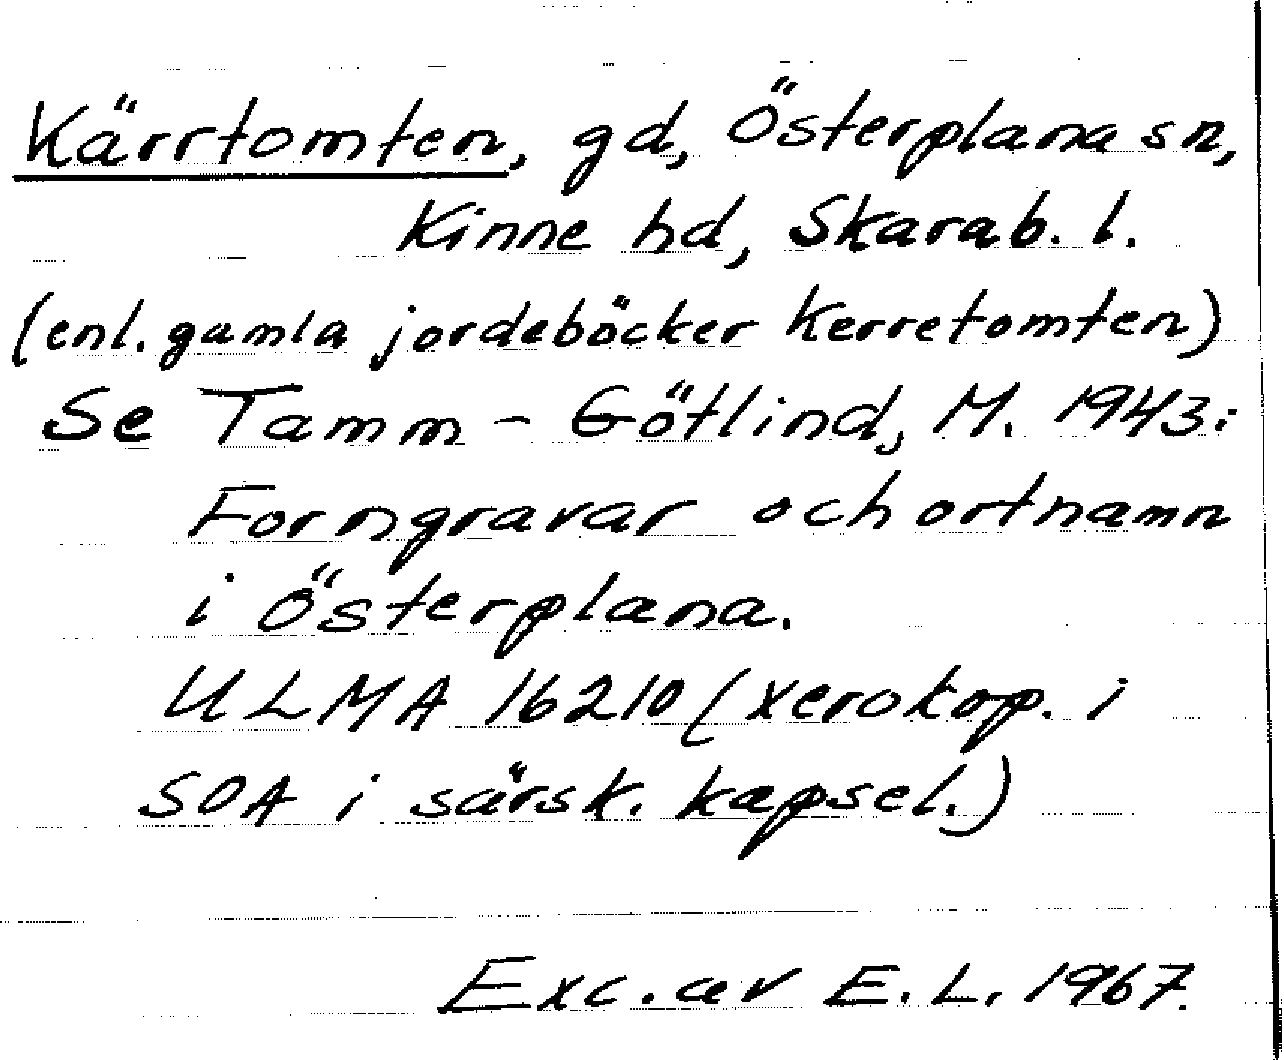 Kärrtomten, gd, Österplana sn,
Kinne hd, Skarab. l.
(enl. gamla jordeböcker Kerretomten)
Se Tamm - Götlind, M. 1943:
Forngravar och ortnamn
i Österplana.
ULMA 16210 (xerokop. i
SOA i särsk. kapsel.)
Exc. av E. L. 1967.